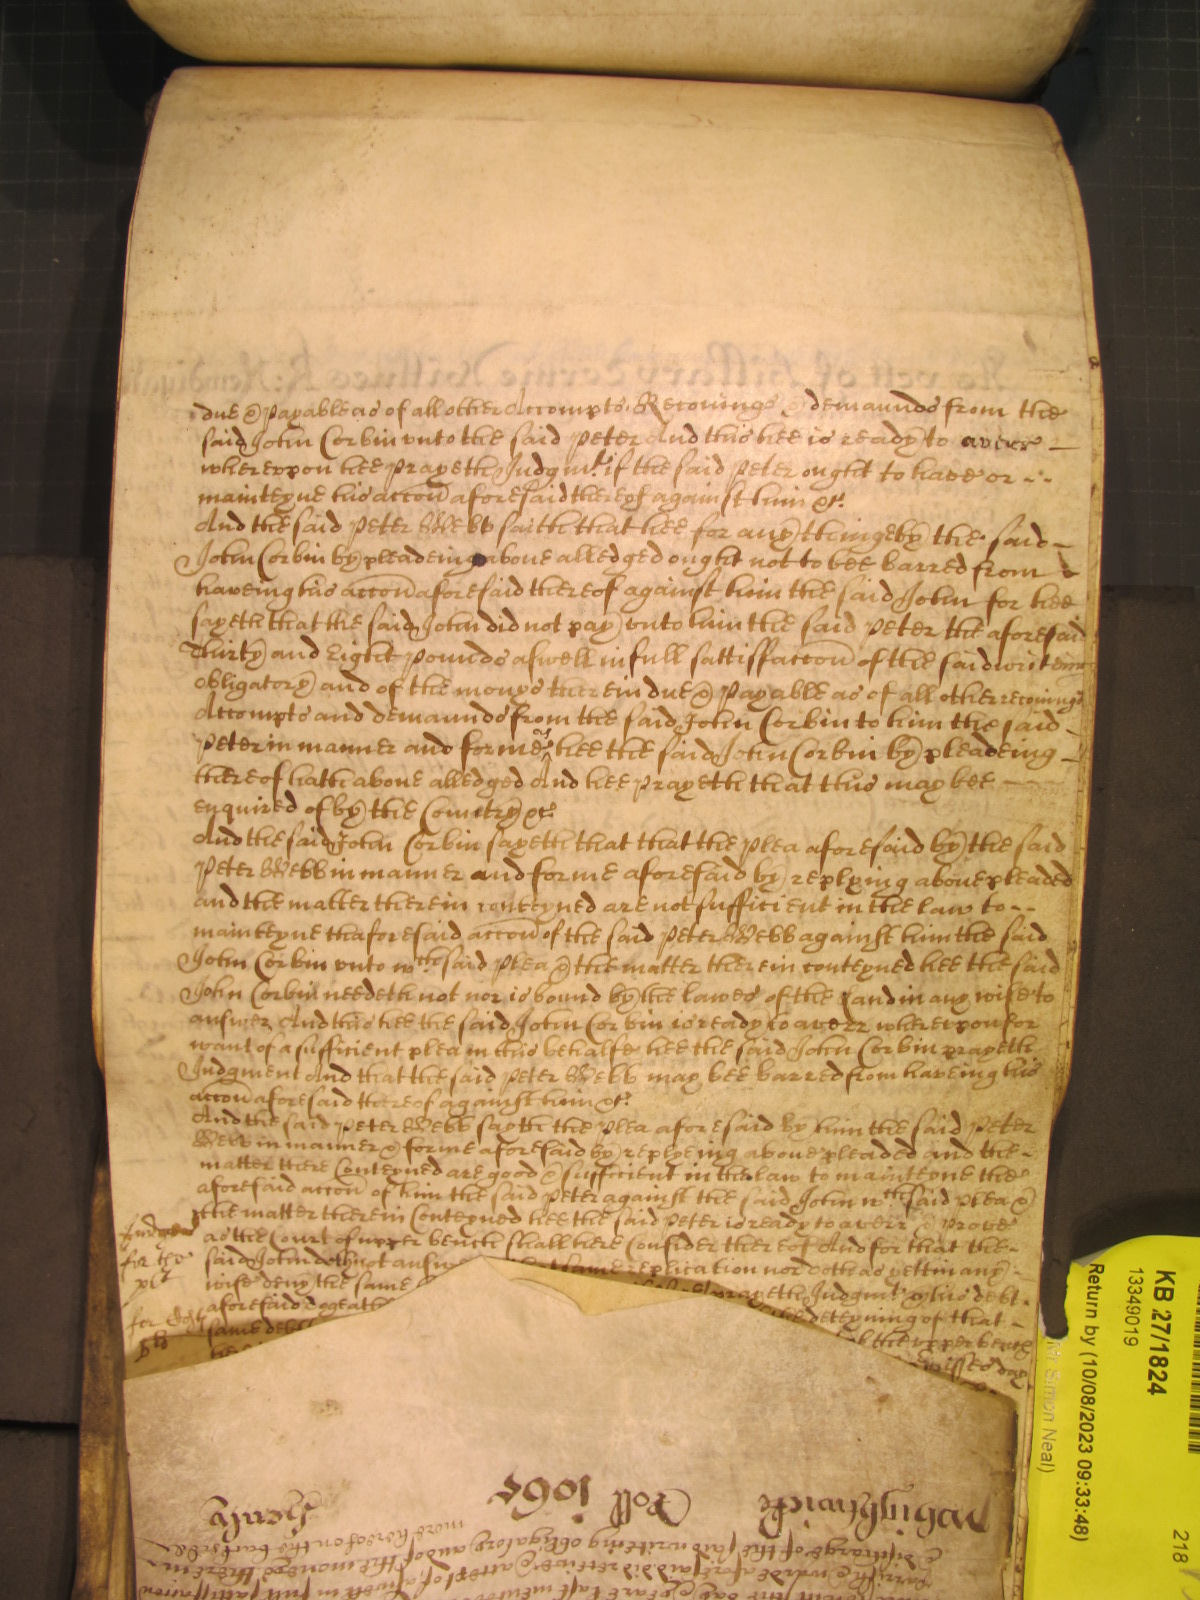 due & payable as of all other Accompts Reconings & demaunds from the
said John Corbin vnto the said Peter And this hee is ready to averr
wherevpon hee prayeth Judgmt. if the said Peter ought to have or
mainteyne his accon aforesaid thereof against him &c.
And the said Peter Webb saith that hee for any thinge by the said
John Corbin by pleadeing aboue alledged ought not to bee barred from
haveing his accon aforesaid thereof against him the said John for hee
sayeth that the said John did not pay vnto him the said Peter the aforesaid
Thirty and Eight Pounds aswell in full sattisfaccon of the said writeing
obligatory and of the monys therein due & payable as of all other reconings
Accompts and demaunds from the said John Corbin to him the said
Peter in manner and forme as hee the said John Corbin by pleadeing
thereof hath aboue alledged And hee prayeth that this may bee
enquired of by the Country &c.
And the said John Corbin sayeth that that the plea aforesaid by the said
Peter Webb in manner and forme aforesaid by replying aboue pleaded
and the matter therein conteyned are not sufficient in the law to
mainteyne thaforesaid accon of the said Peter Webb against him the said
John Corbin vnto wch said plea & the matter therein conteyned hee the said
John Corbin needeth not nor is bound by the lawes of the land in any wise to
answer And this hee the said John Corbin is ready to averr wherevpon for
want of a sufficient plea in this behalfe hee the said John Corbin prayeth
Judgment And that the said Peter Webb may bee barred from haveing his
accon aforesaid thereof against him &c.
And the said Peter Webb sayth the plea aforesaid by him the said Peter
Webb in manner & forme aforesaid by replyeing aboue pleaded and the
matter there Conteyned are good & sufficient in the law to mainteyne the
aforesaid accon of him the said Peter against the said John wch said plea &
the matter therein Conteyned hee the said Peter is ready to averr & prove
as the Court of vpper bench shall here Consider thereof And for that the
said John doth not answ same replication nor doth as yett in any
wise deny the same prayeth Judgmt & his debt
aforesaid togeath deteyning of that
same debt the vpper bench
day
for the
plt
for
KB 27/1824
13349019
Return by (10/08/2023 09:33:48)
Mr Simon Neal)
218
Roll 1095
more hereof on the backside
discharge of the said writeing obligatory and of the moneys therein